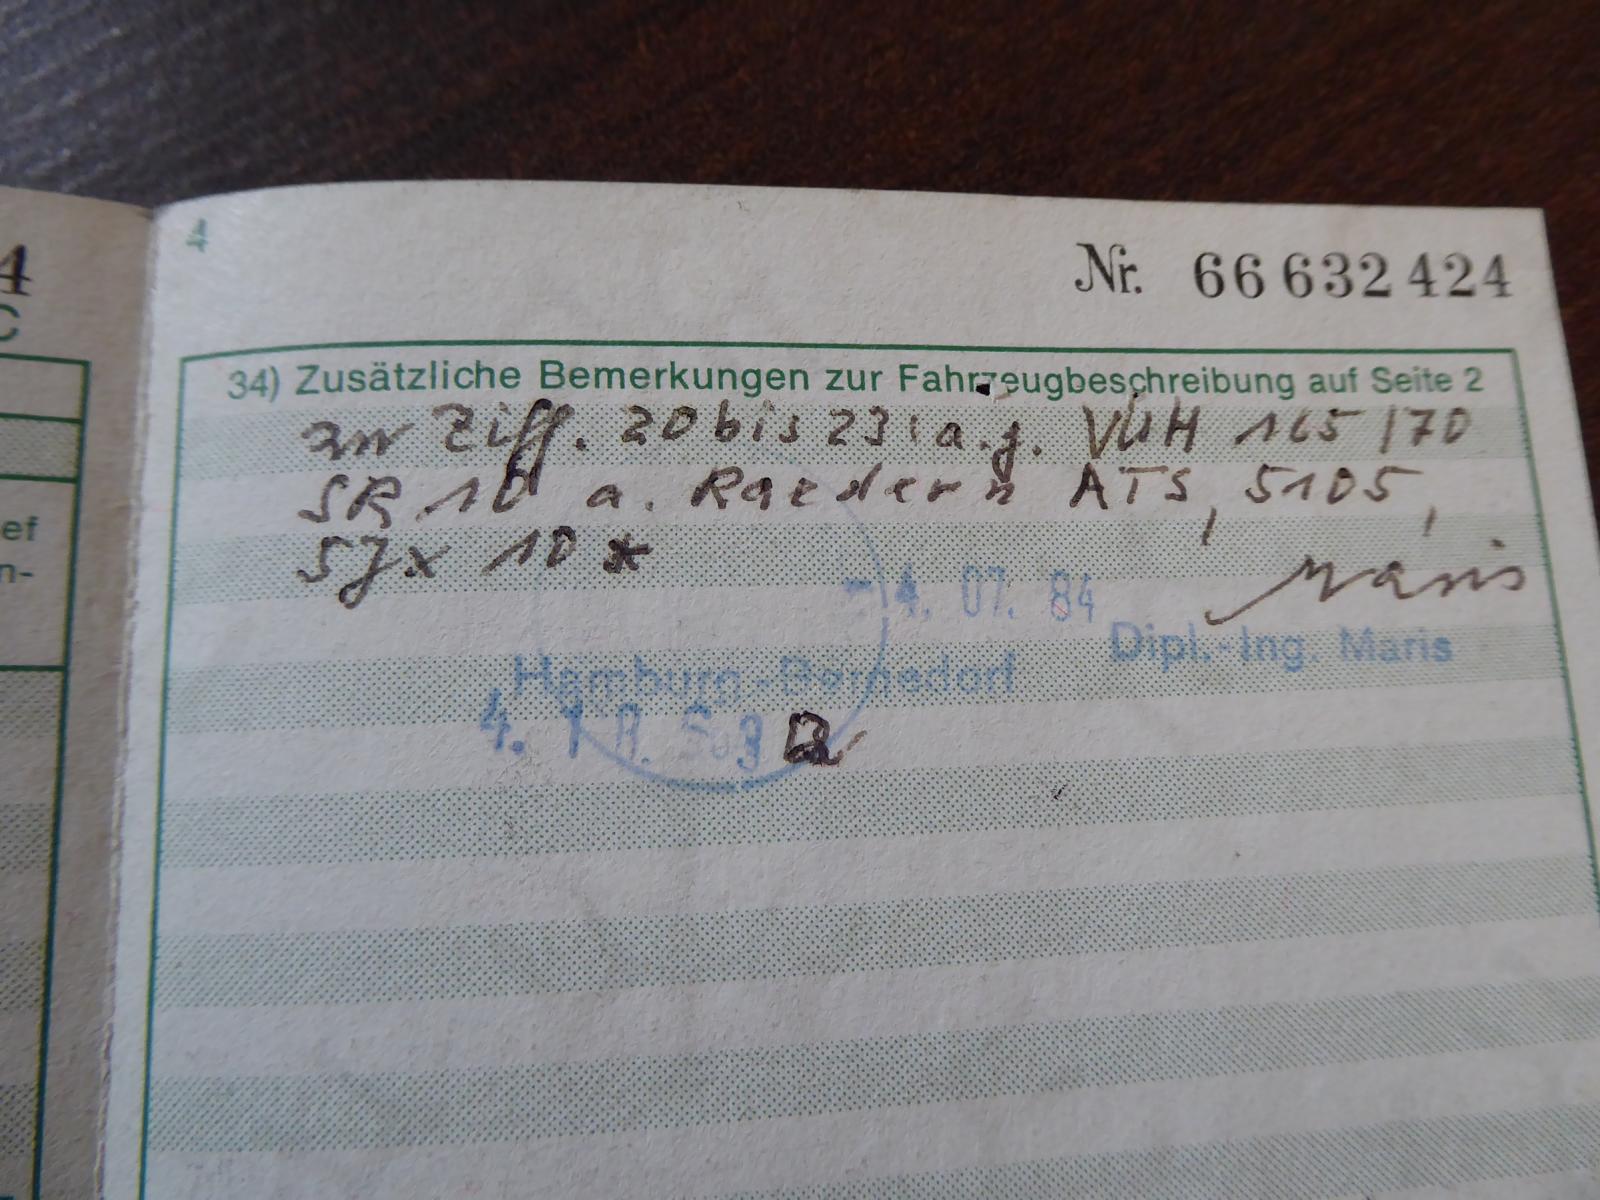 4
Nr. 66 632 424
34) Zusätzliche Bemerkungen zur Fahrzeugbeschreibung auf Seite 2
zu Ziff. 20 bis 23: a.g. VUH 165/70
SR 10 a. Raedern ATS, 5105,
5Jx 10 *
Maris
-4. 07. 84
Dipl.-Ing. Maris
Hamburg-Bergedorf
4
C
ef
n-